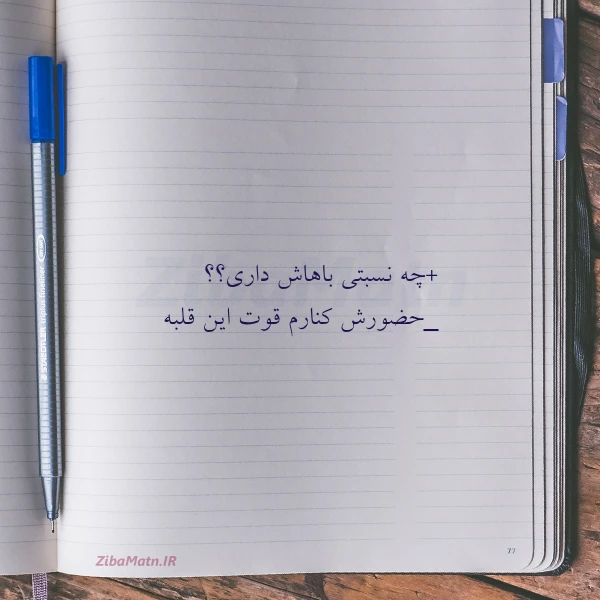 +چه نسبتی باهاش داری؟؟
_حضورش کنارم قوت این قلبه
ZibaMatn.IR
77